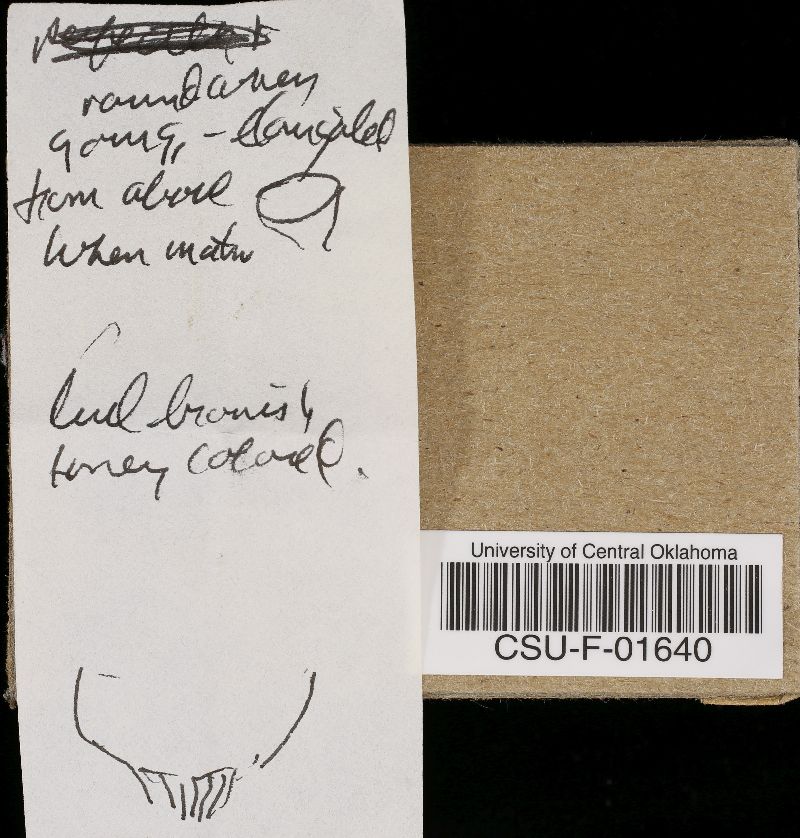 round when
young, - elongated
from above
When matur
and brownish
honey colored.
University of Central Oklahoma
CSU-F-01640